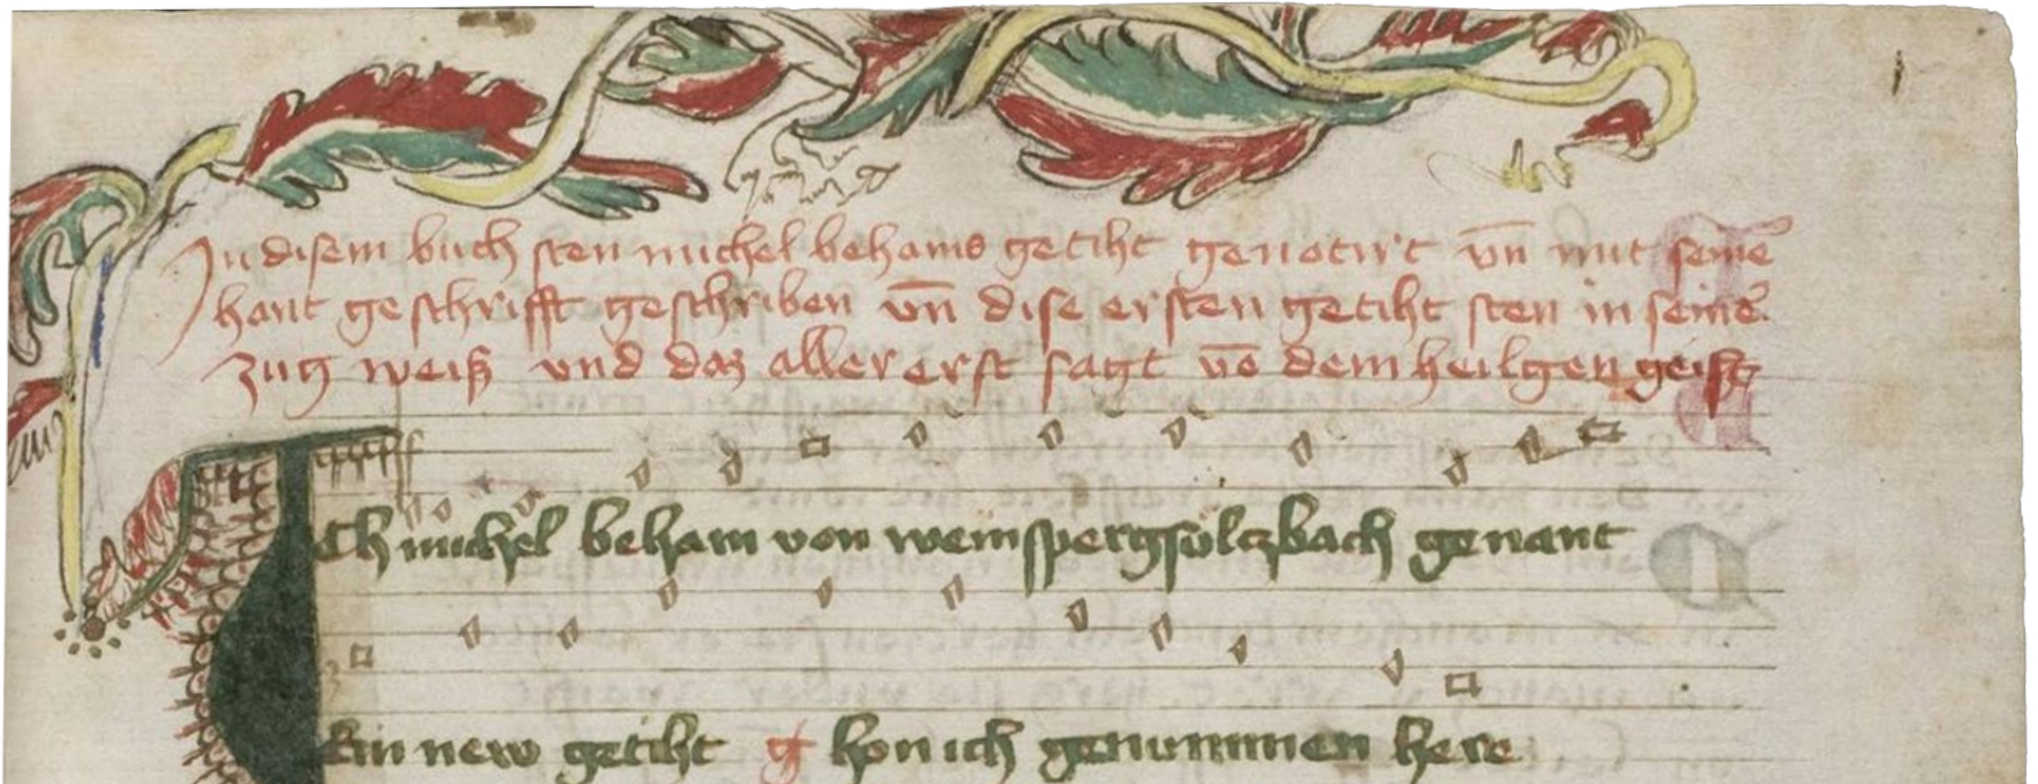 In disem buch sten michel behams getiht genotirt vn̄ mit seine
hant geschrifft geschriben vn̄ dise ersten getiht sten in seine᷑
zug weiß vnd daz aller erst sagt vō dem heilgen geist
ICh michel beham von weinspergsulczbach genant
Ein new getiht g hon ich genummen here